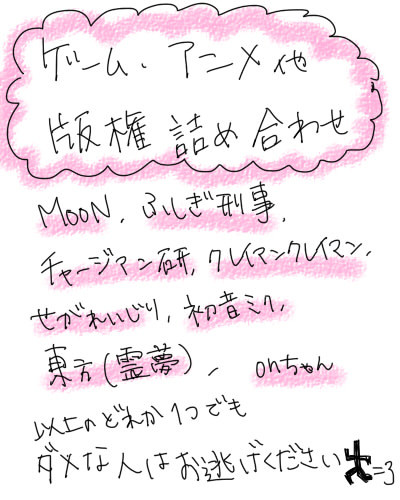 ゲーム・アニメ他
版権詰め合わせ
MOON、ふしぎ刑事、
チャージマン研、クレイマンクレイマン、
せがれいじり、初音ミク、
東方(霊夢)、onちゃん
以上のどれか1つでも
ダメな人はお逃げください =3